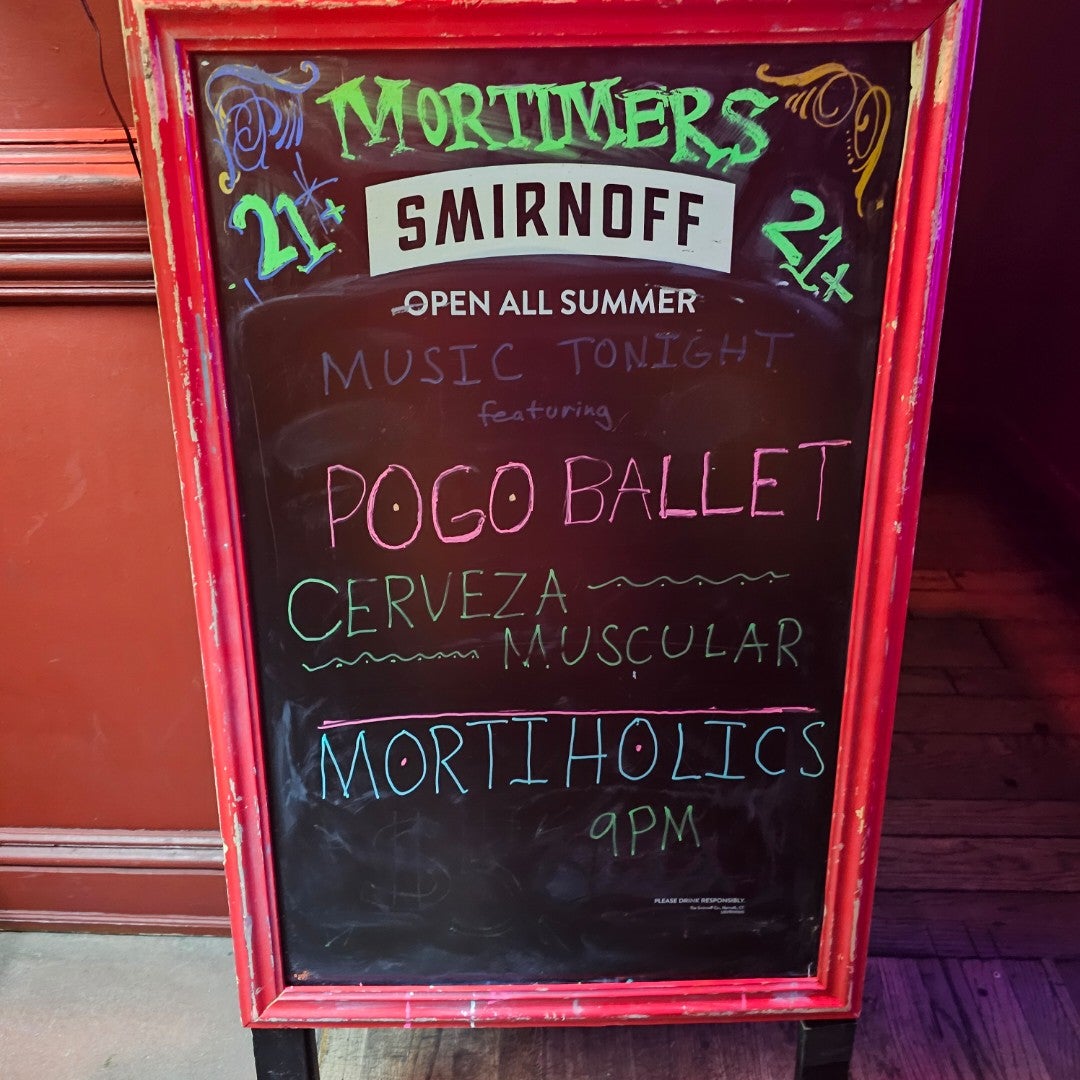 MORTIMERS
21+
SMIRNOFF
21+
OPEN ALL SUMMER
MUSIC TONIGHT
featuring
POGO BALLET
CERVEZA
MUSCULAR
MORTIHOLICS
9PM
PLEASE DRINK RESPONSIBLY.